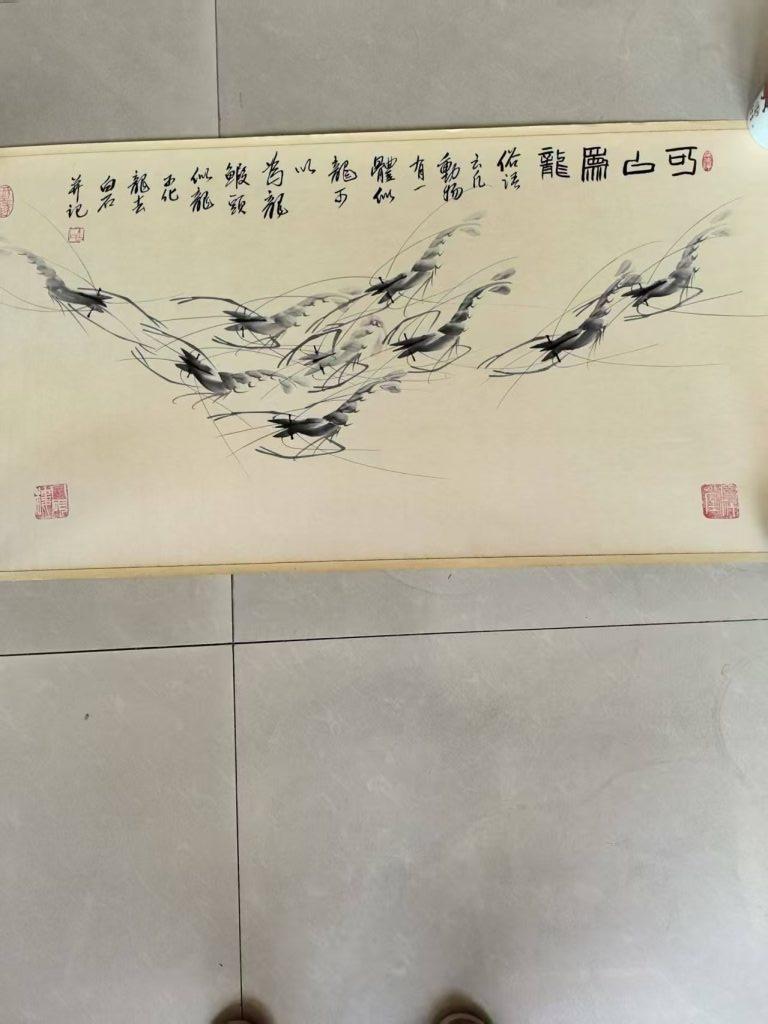 可㠯為龍
俗語
云凡
動物
有一
體似
龍可
以
為龍
鰕頭
似龍
化
龍去
白石
並記